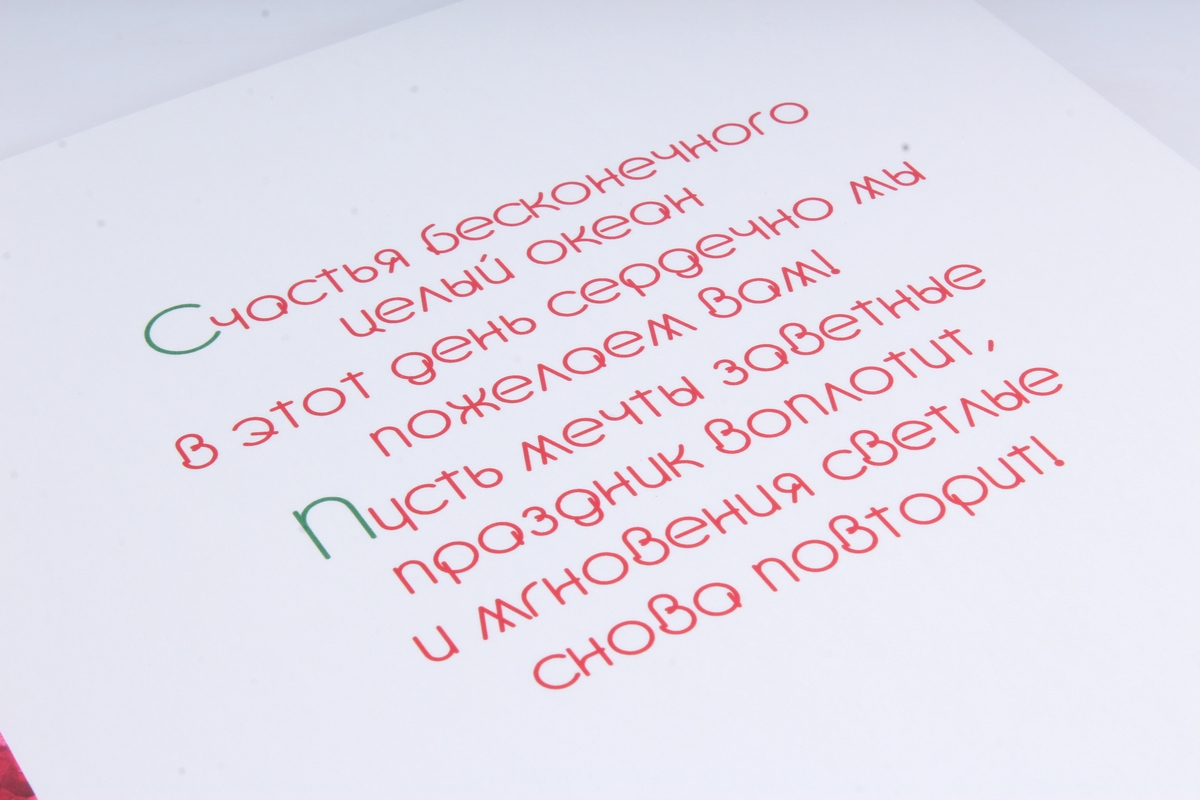 Счастья бесконечного
целый океан
в этот день сердечно мы
пожелаем вам!
Пусть мечты заветные
праздник воплотит,
и мгновения светлые
снова повторит!